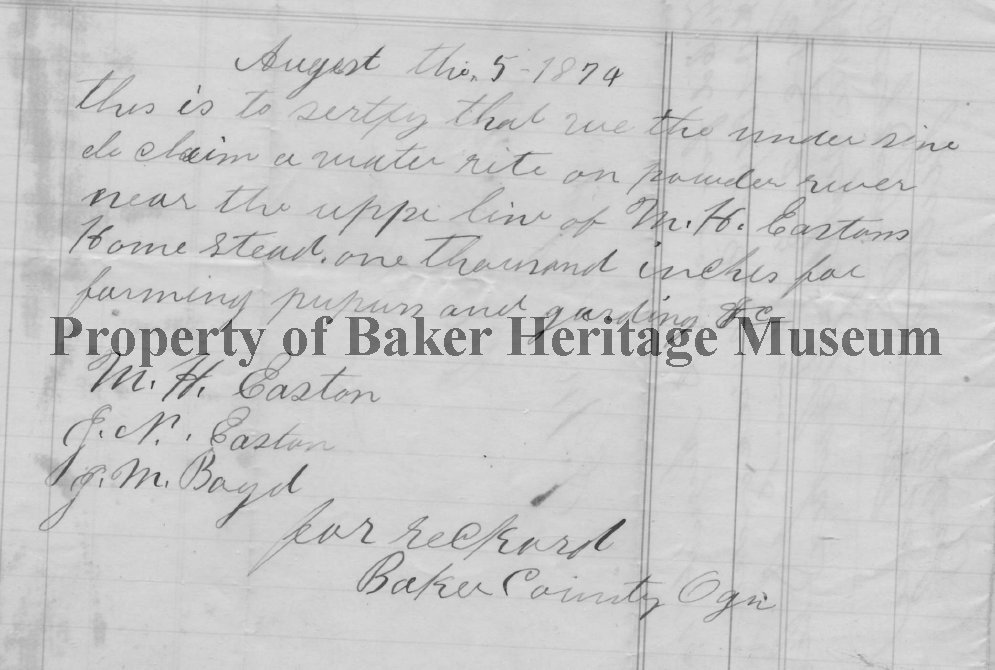 August the, 5 - 1874
this is to sertfy that we the under sine
do claim a water rite on powder river
near the uppe line of M. H. Eastons
Home stead. one thousand inches for
farming pupurs and garding &c
Property of Baker Heritage Museum
M. H. Easton
J. N. Easton
J. M. Boyd
for reckord
Baker County Ogn